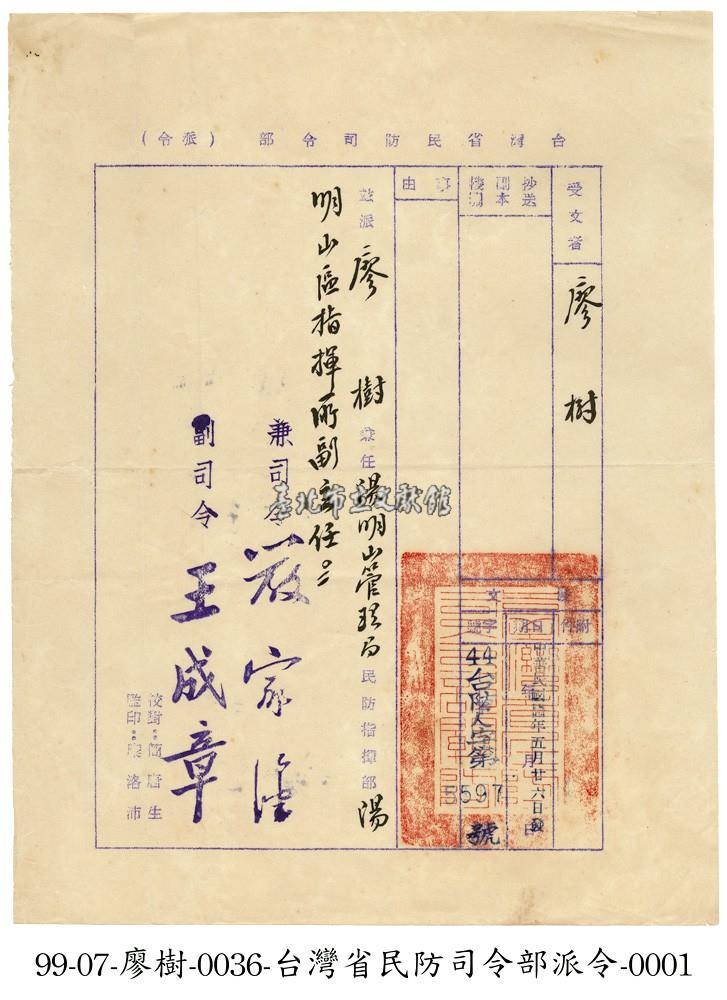 台灣省民防司令部（派令）
受文者
廖樹
抄送
副本
事由
發文
附件
日期
字號
中華民國四四年五月廿六日發
44台防人字第5597號
茲派廖樹兼任陽明山管理局民防指揮部陽
明山區指揮所副主任。
兼司令嚴家淦
副司令王成章
臺北市立文獻館
校對：
監印：
99-07-廖樹-0036-台灣省民防司令部派令-0001